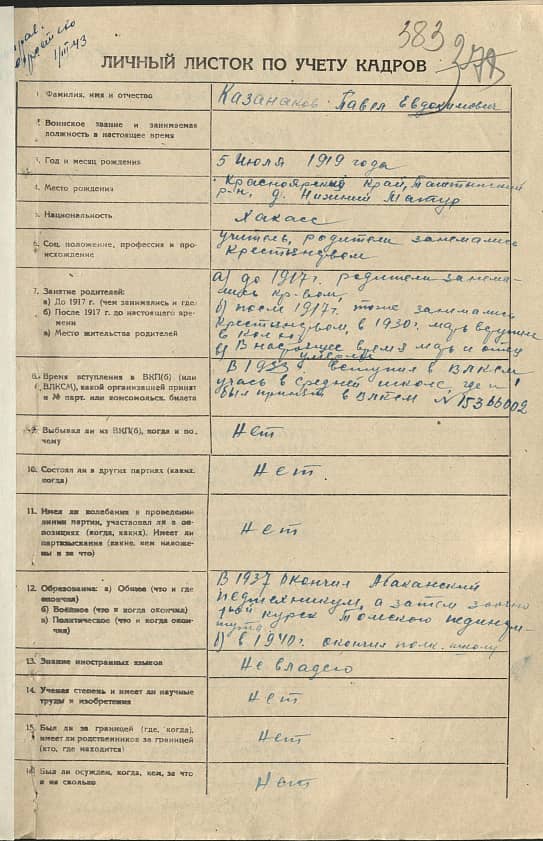 1/III 43
383
ЛИЧНЫЙ ЛИСТОК ПО УЧЕТУ КАДРОВ
1. Фамилия, имя и отчество
Казанаков Павел Евдокимович
2. Воинское звание и занимаемая
должность в настоящее время
3. Год и месяц рождения
5 Июля 1919 года
4. Место рождения
Красноярский край, Таштыпский
р-н, д. Нижний Матур
5. Национальность
Хакасс
6. Соц. положение, профессия и про-
исхождение
учитель, родители занемались
Крестьянством
7. Занятие родителей:
а) До 1917 г. (чем занимались и где)
б) После 1917 г. до настоящего вре-
мени
в) Место жительства родителей
а) до 1917 г. родители занема-
лись кр-вом,
б) после 1917 г. тоже занемались
Крестьянством, в 1930 г. мать вступила
в
в) В настоящее время мать и отец
умерли
8. Время вступления в ВКП(б) (или
ВЛКСМ), какой организацией принят
и № парт. или комсомольск. билета
В 1933 г. вступил в ВЛКСМ
учась в средней школе, где и
был принят в ВЛКСМ №
9. Выбывал ли из ВКП(б), когда и по-
чему
Нет
10. Состоял ли в других партиях (каких,
когда)
Нет
11. Имел ли колебания в проведении
линии партии, участвовал ли в оп-
позициях (когда, каких). Имеет ли
партвзыскания (какие, кем наложе-
ны и за что)
Нет
12. Образование: а) Общее (что и где
окончил)
б) Военное (что и когда окончил)
в) Политическое (что и когда окон-
чил)
В 1937 Окончил Абаканский
педтехникум, а затем
курса Томского пединсти-
тута
б) в 1940 г. окончил полк. школу
13. Знание иностранных языков
Не владею
14. Ученая степень и имеет ли научные
труды и изобретения
Нет
15. Был ли за границей (где, когда),
имеет ли родственников за границей
(кто, где находится)
Нет
16. Был ли осужден, когда, кем, за что
и на сколько
Нет